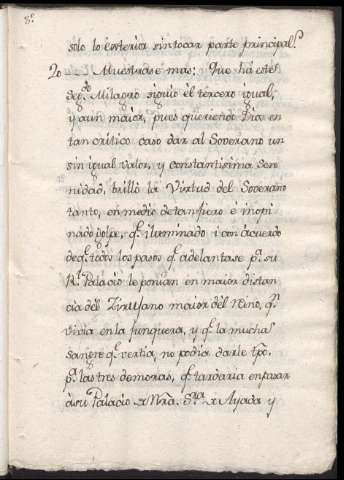 8º
solo lo Exterior sin tocar parte principal.
20 Muestrase mas: Que há este
seg.do Milagro siguio el tercero igual,
y aun maior, pues queriendo Dios en
tan critico caso dar al Soverano un
sin igual valor, y constantisima Sere
nidad, brilló la Virtud del Soverano
tanto, en medio de tan fiero é inopi
nado golpe, q.e iluminado i con acuerdo
de q.e todos los pasos q.e adelantase p.a su
R.l Palacio le ponian en maior distan
cia del Zirujano maior del Reino, q.e
vivia en la Junquera, y q.e la mucha
sangre q.e vertia, no podia darle tpo.
p.a las tres demoras, q.e tardaria en pasar
á su Palacio a Nra. S.ra de Ayuda y